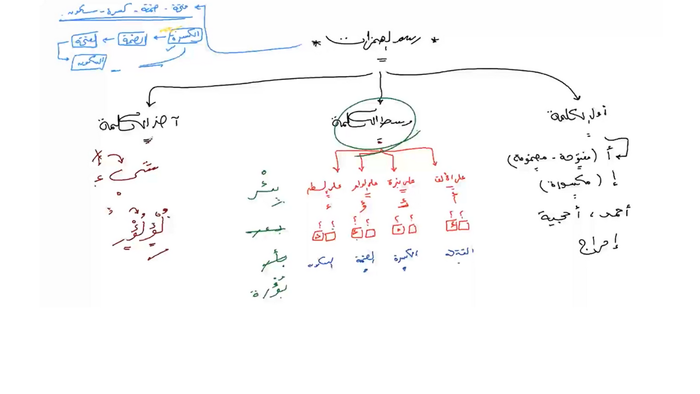 فتحة - ضمة - كسرة - سكون
* رسم الهمزات *
الكسرة ← الضمة ← الفتحة
السكون
أول الكلمة
وسط الكلمة
آخر الكلمة
أ (مفتوحة - مضمومة)
إ (مكسورة)
أحمد ،
إحراج
على الألف
على نبرة
على الواو
على السطر
أ
ئ
ؤ
ء
الفتحة
الكسرة
الضمة
السكون
بئر
بؤرة
شيء
لؤلؤ